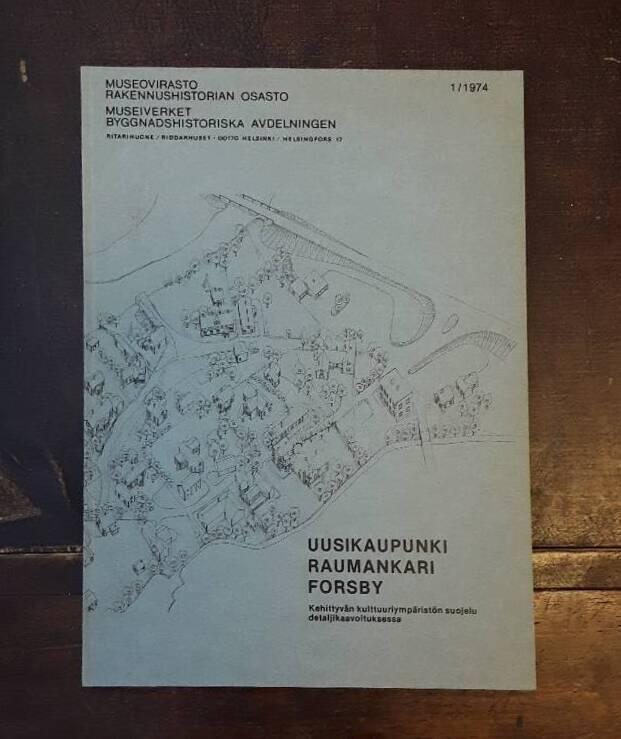 MUSEOVIRASTO
RAKENNUSHISTORIAN OSASTO
1/1974
MUSEIVERKET
BYGGNADSHISTORISKA AVDELNINGEN
RITARIHUONE / RIDDARHUSET · 00170 HELSINKI / HELSINGFORS 17
UUSIKAUPUNKI
RAUMANKARI
FORSBY
Kehittyvän kulttuuriympäristön suojelu
detaljikaavoituksessa